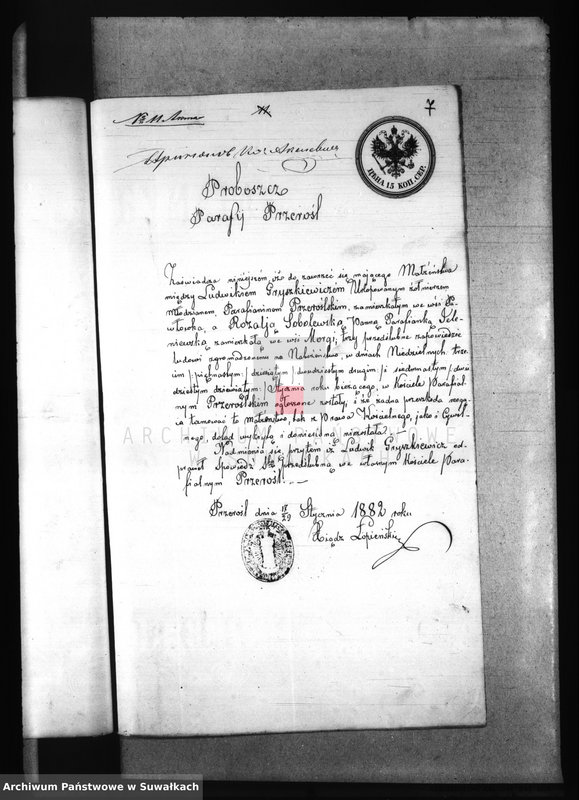 7
ЦѢНА 15 КОП. СЕР.
Proboszcz
Parafij Przerośl
Zaświadcza niniejszém, iż do zawrzéć się mającego Małżeństwa
między Ludwikiem Gryszkiewiczem Urlopowanym żołnierzem
Młodzianem, Parafianinem Przeroślskim, zamieszkałym we wsi
a Rozalją Sobolewską Panną Parafianką
zamieszkałą we wsi Morgi, trzy przedślubne zapowiedzie
ludowi zgromadzonemu na Nabożeństwo, w dniach Niedzielnych, trze-
cim /piętnastym/ dziesiątym /dwudziestym drugim/ i siedmnastym /dwu
dziestym dziewiątym/ Stycznia roku bieżącego, w Kościele Parafial-
nym Przeroślskim ogłoszone zostały, i że żadna przeszkoda mogą-
ca tamować to małżeństwo, bądź z Prawa Kościelnego, jako i Cywil-
nego, dotąd wykrytą i doniesioną niezostała.
Nadmienia się przytem iż Ludwik Gryszkiewicz od-
prawił Spowiedź Stą przedślubną we własnym Kościele Para-
fialnym Przerośl.
Przerośl dnia 17/29 Stycznia 1882 roku
Xiądz Łopieński
ARCHIWUM PAŃSTWOWE
Archiwum Państwowe w Suwałkach